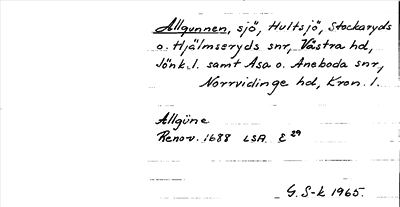 Allgunnen, sjö, Hultsjö, Stockaryds
o. Hjälmseryds snr, Västra hd,
Jönk. l. samt Asa o. Aneboda snr,
Norrvidinge hd, Kron. l.
Allgüne
Renov. 1688 LSA E 29
G. S-k 1965.